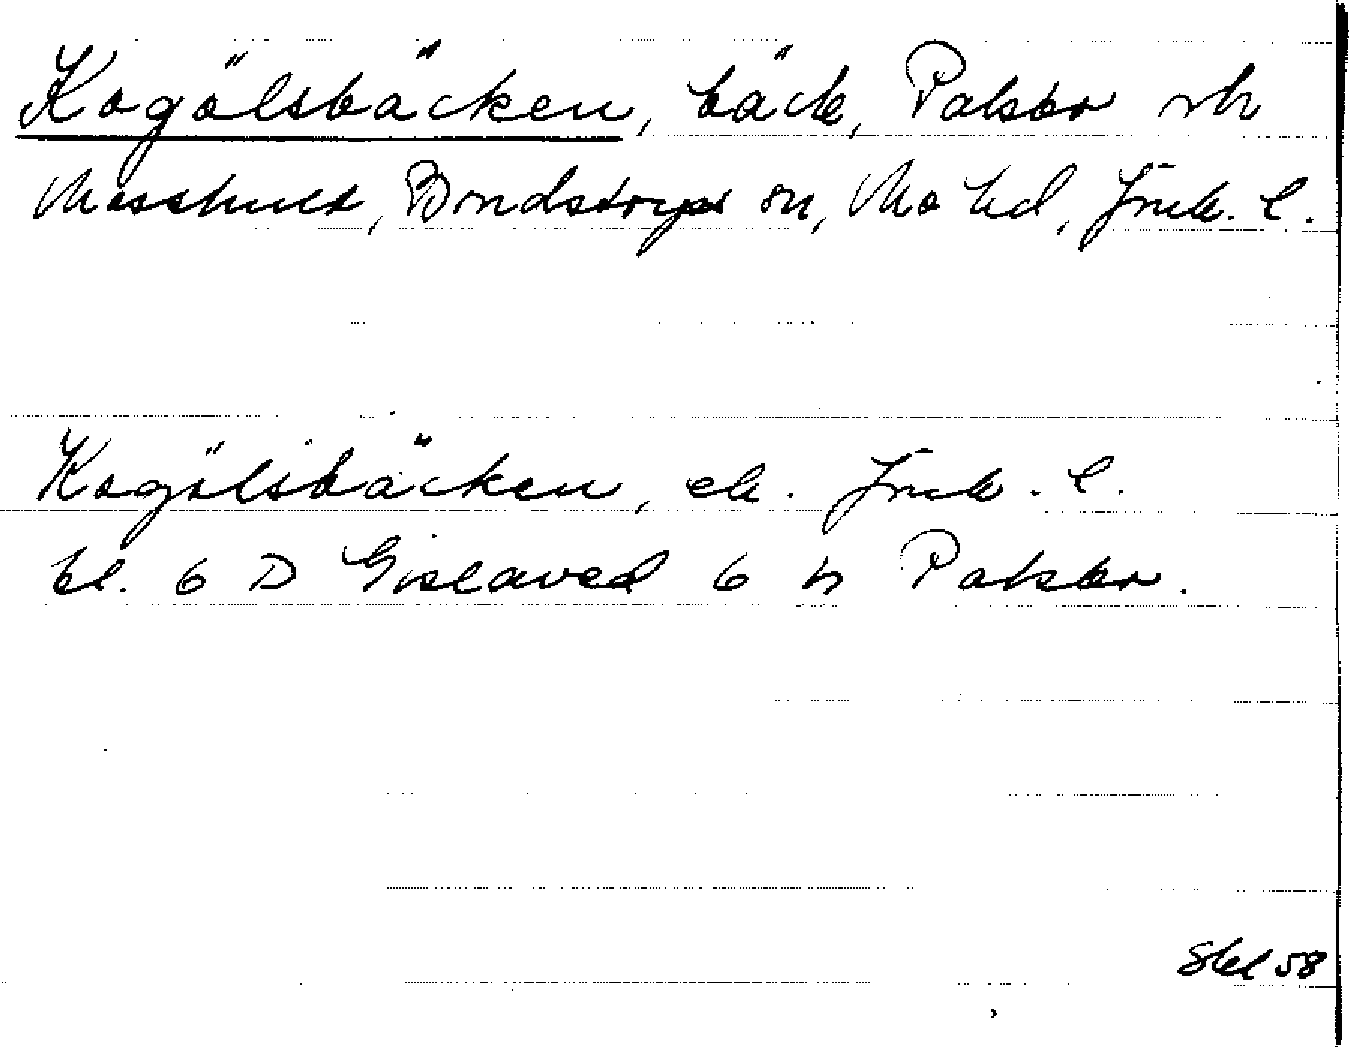 Kogölsbäcken, bäck, Palsbo och
Mosshult, Bondstorps sn, Mo hd, Jmk. l.
Kogölsbäcken, ek. Jmk. l.
bl. 6 D Gislaved 6 h Palsbo.
Skl 58